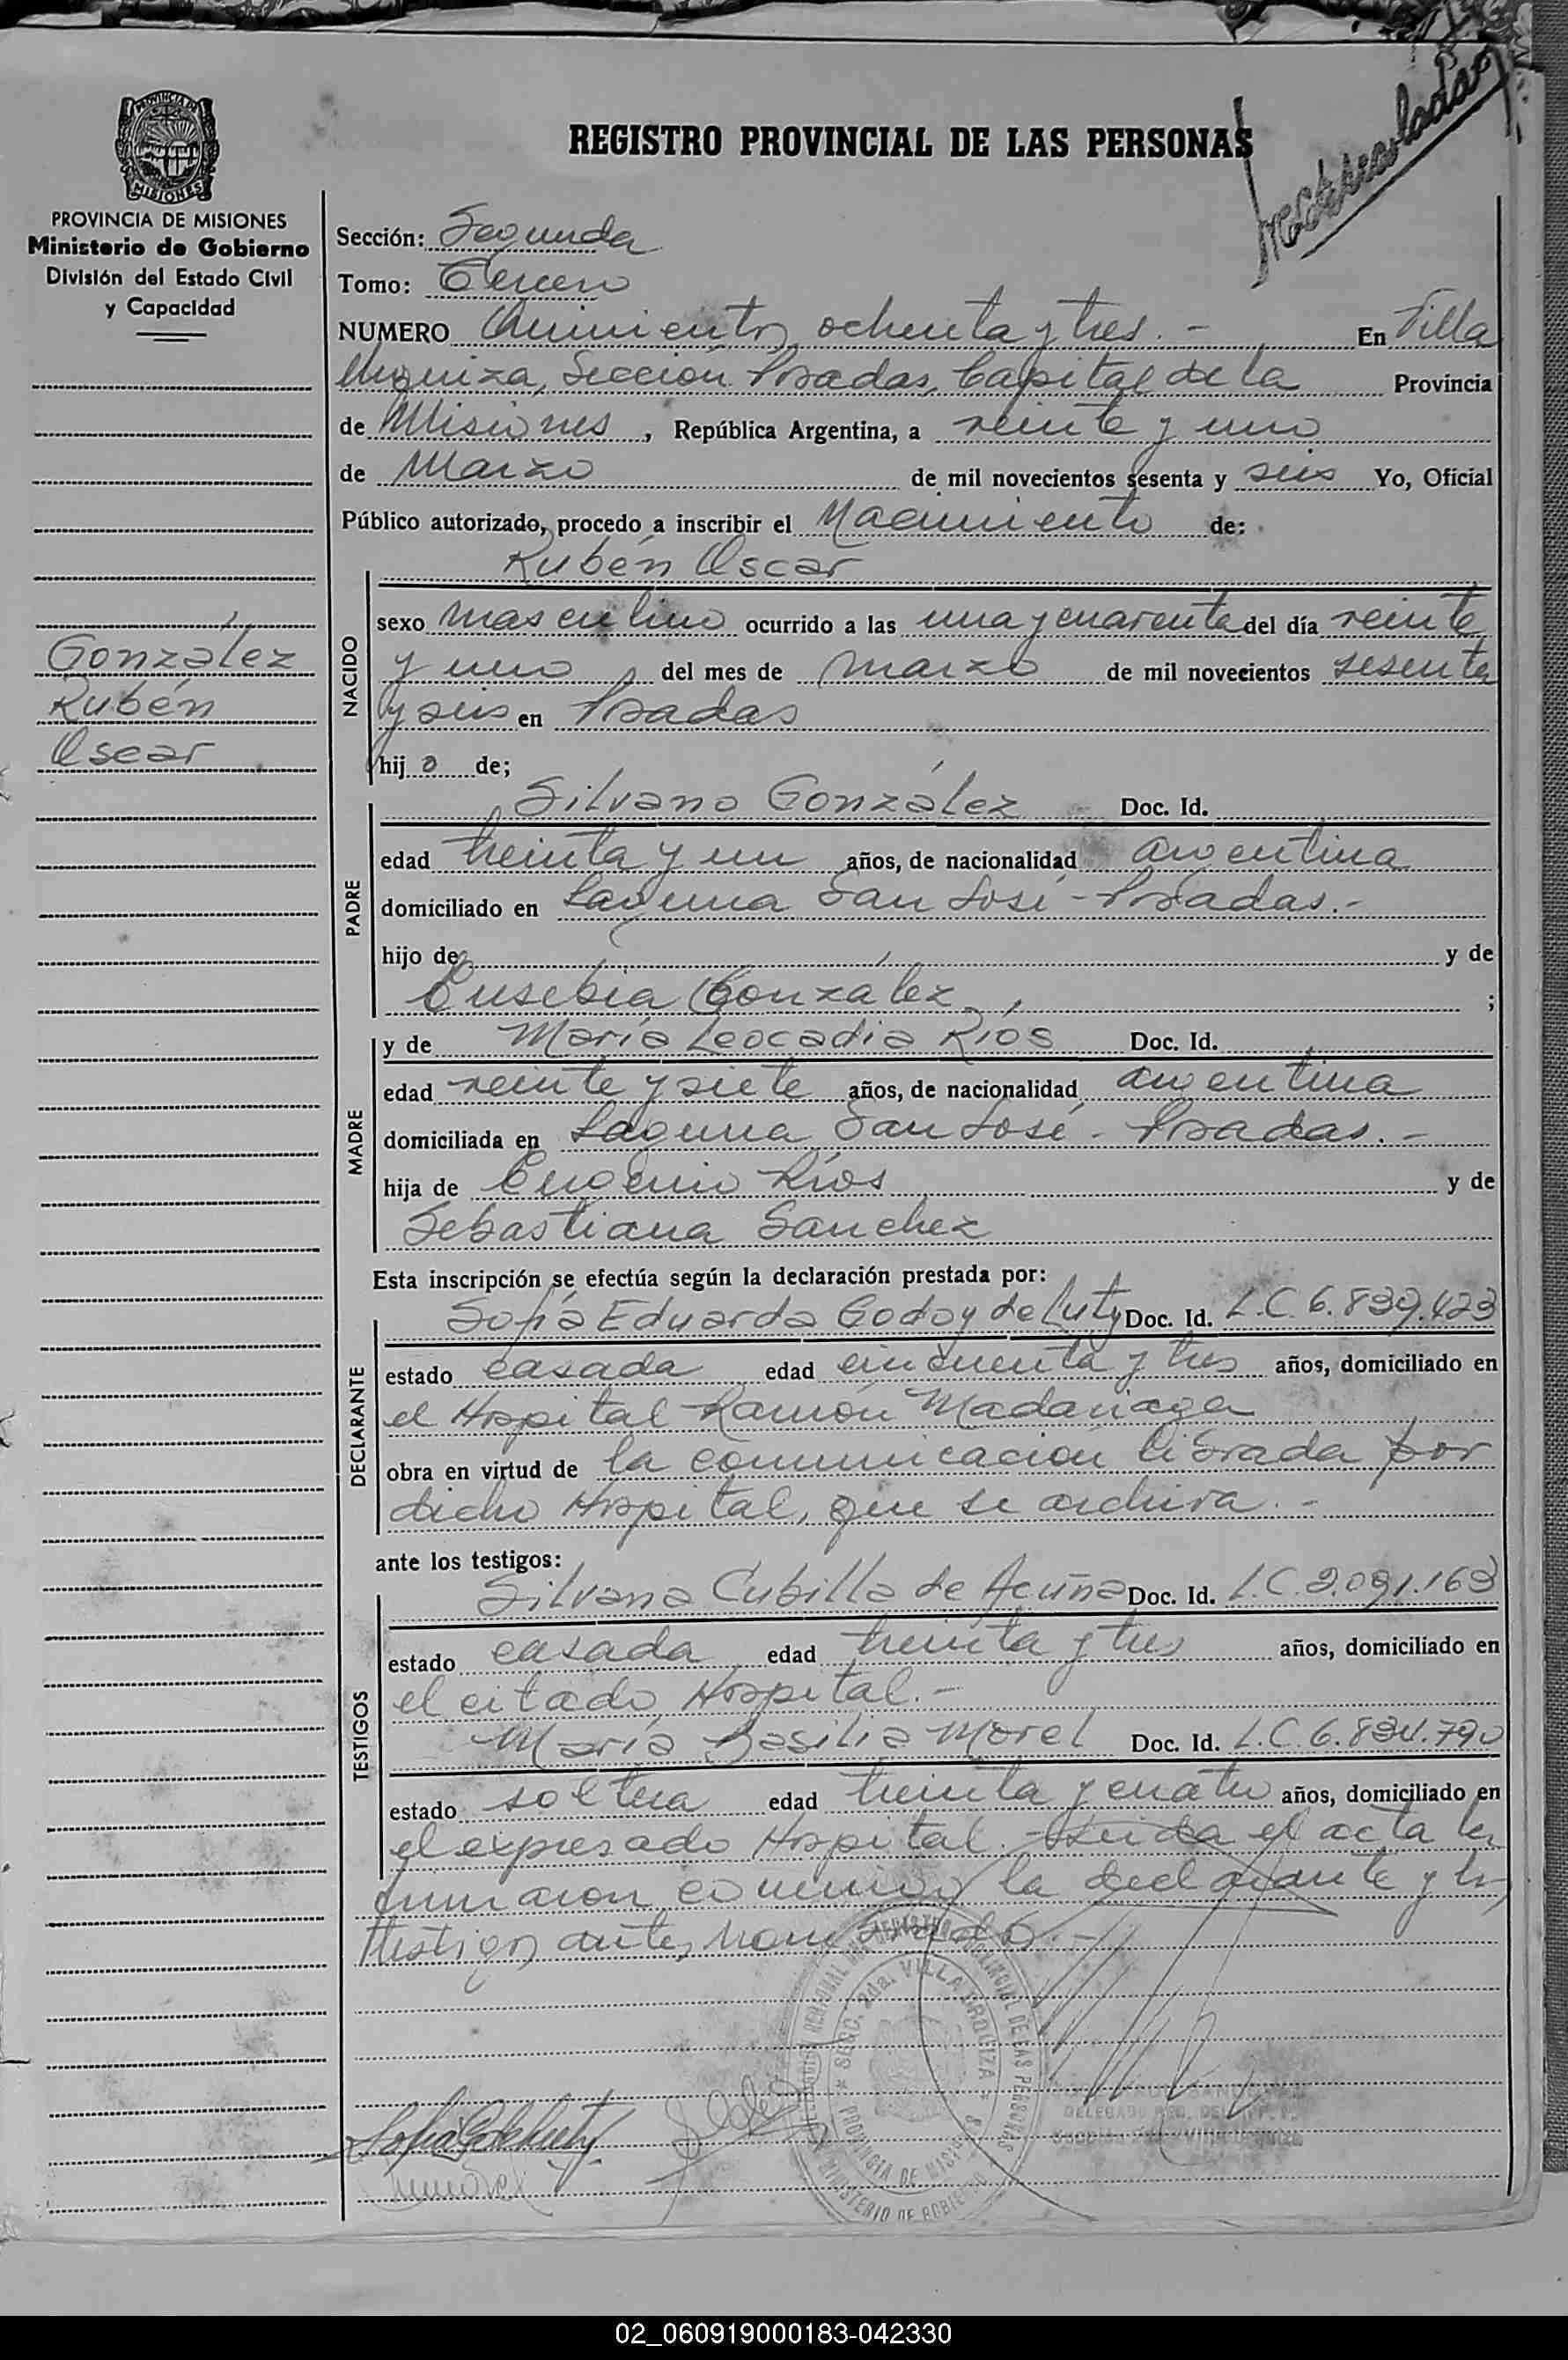 PROVINCIA DE MISIONES
Ministerio de Gobierno
División del Estado Civil
y Capacidad
González
Rubén
Oscar
REGISTRO PROVINCIAL DE LAS PERSONAS
Sección: Segunda
Tomo: Tercero
NUMERO Quinientos ochenta y tres.- En Villa
Urquiza, Sección Posadas, Capital de la Provincia
de Misiones, República Argentina, a veinte y uno
de Marzo de mil novecientos sesenta y seis Yo, Oficial
Público autorizado, procedo a inscribir el Nacimiento de:
Rubén Oscar
NACIDO
sexo masculino ocurrido a las una y cuarenta del día veinte
y uno del mes de marzo de mil novecientos sesenta
y seis en Posadas
hijo de;
PADRE
Silvano González Doc. Id.
edad treinta y un años, de nacionalidad argentina
domiciliado en Laguna San José - Posadas.-
hijo de y de
Eusebia González ;
MADRE
y de María Leocadia Ríos Doc. Id.
edad veinte y siete años, de nacionalidad argentina
domiciliada en Laguna San José - Posadas.-
hija de Eugenio Ríos y de
Sebastiana Sanchez
Esta inscripción se efectúa según la declaración prestada por:
DECLARANTE
Sofía Eduarda Godoy de Luty Doc. Id. L.C. 6.839.423
estado casada edad cincuenta y tres años, domiciliado en
el Hospital Ramón Madariaga
obra en virtud de la comunicación librada por
dicho Hospital, que se archiva.-
ante los testigos:
TESTIGOS
Silvana Cubilla de Acuña Doc. Id. L.C. 9.091.163
estado casada edad treinta y tres años, domiciliado en
el citado Hospital.-
María Basilia Morel Doc. Id. L.C. 6.834.790
estado soltera edad treinta y cuatro años, domiciliado en
el expresado Hospital.- Leída el acta la
firmaron conmigo la declarante y los
testigos antes nombrados.-
REGISTRO PROVINCIAL DE LAS PERSONAS
SECC. 2da. VILLA URQUIZA
PROVINCIA DE MISIONES
MINISTERIO DE GOBIERNO
02_060919000183-042330